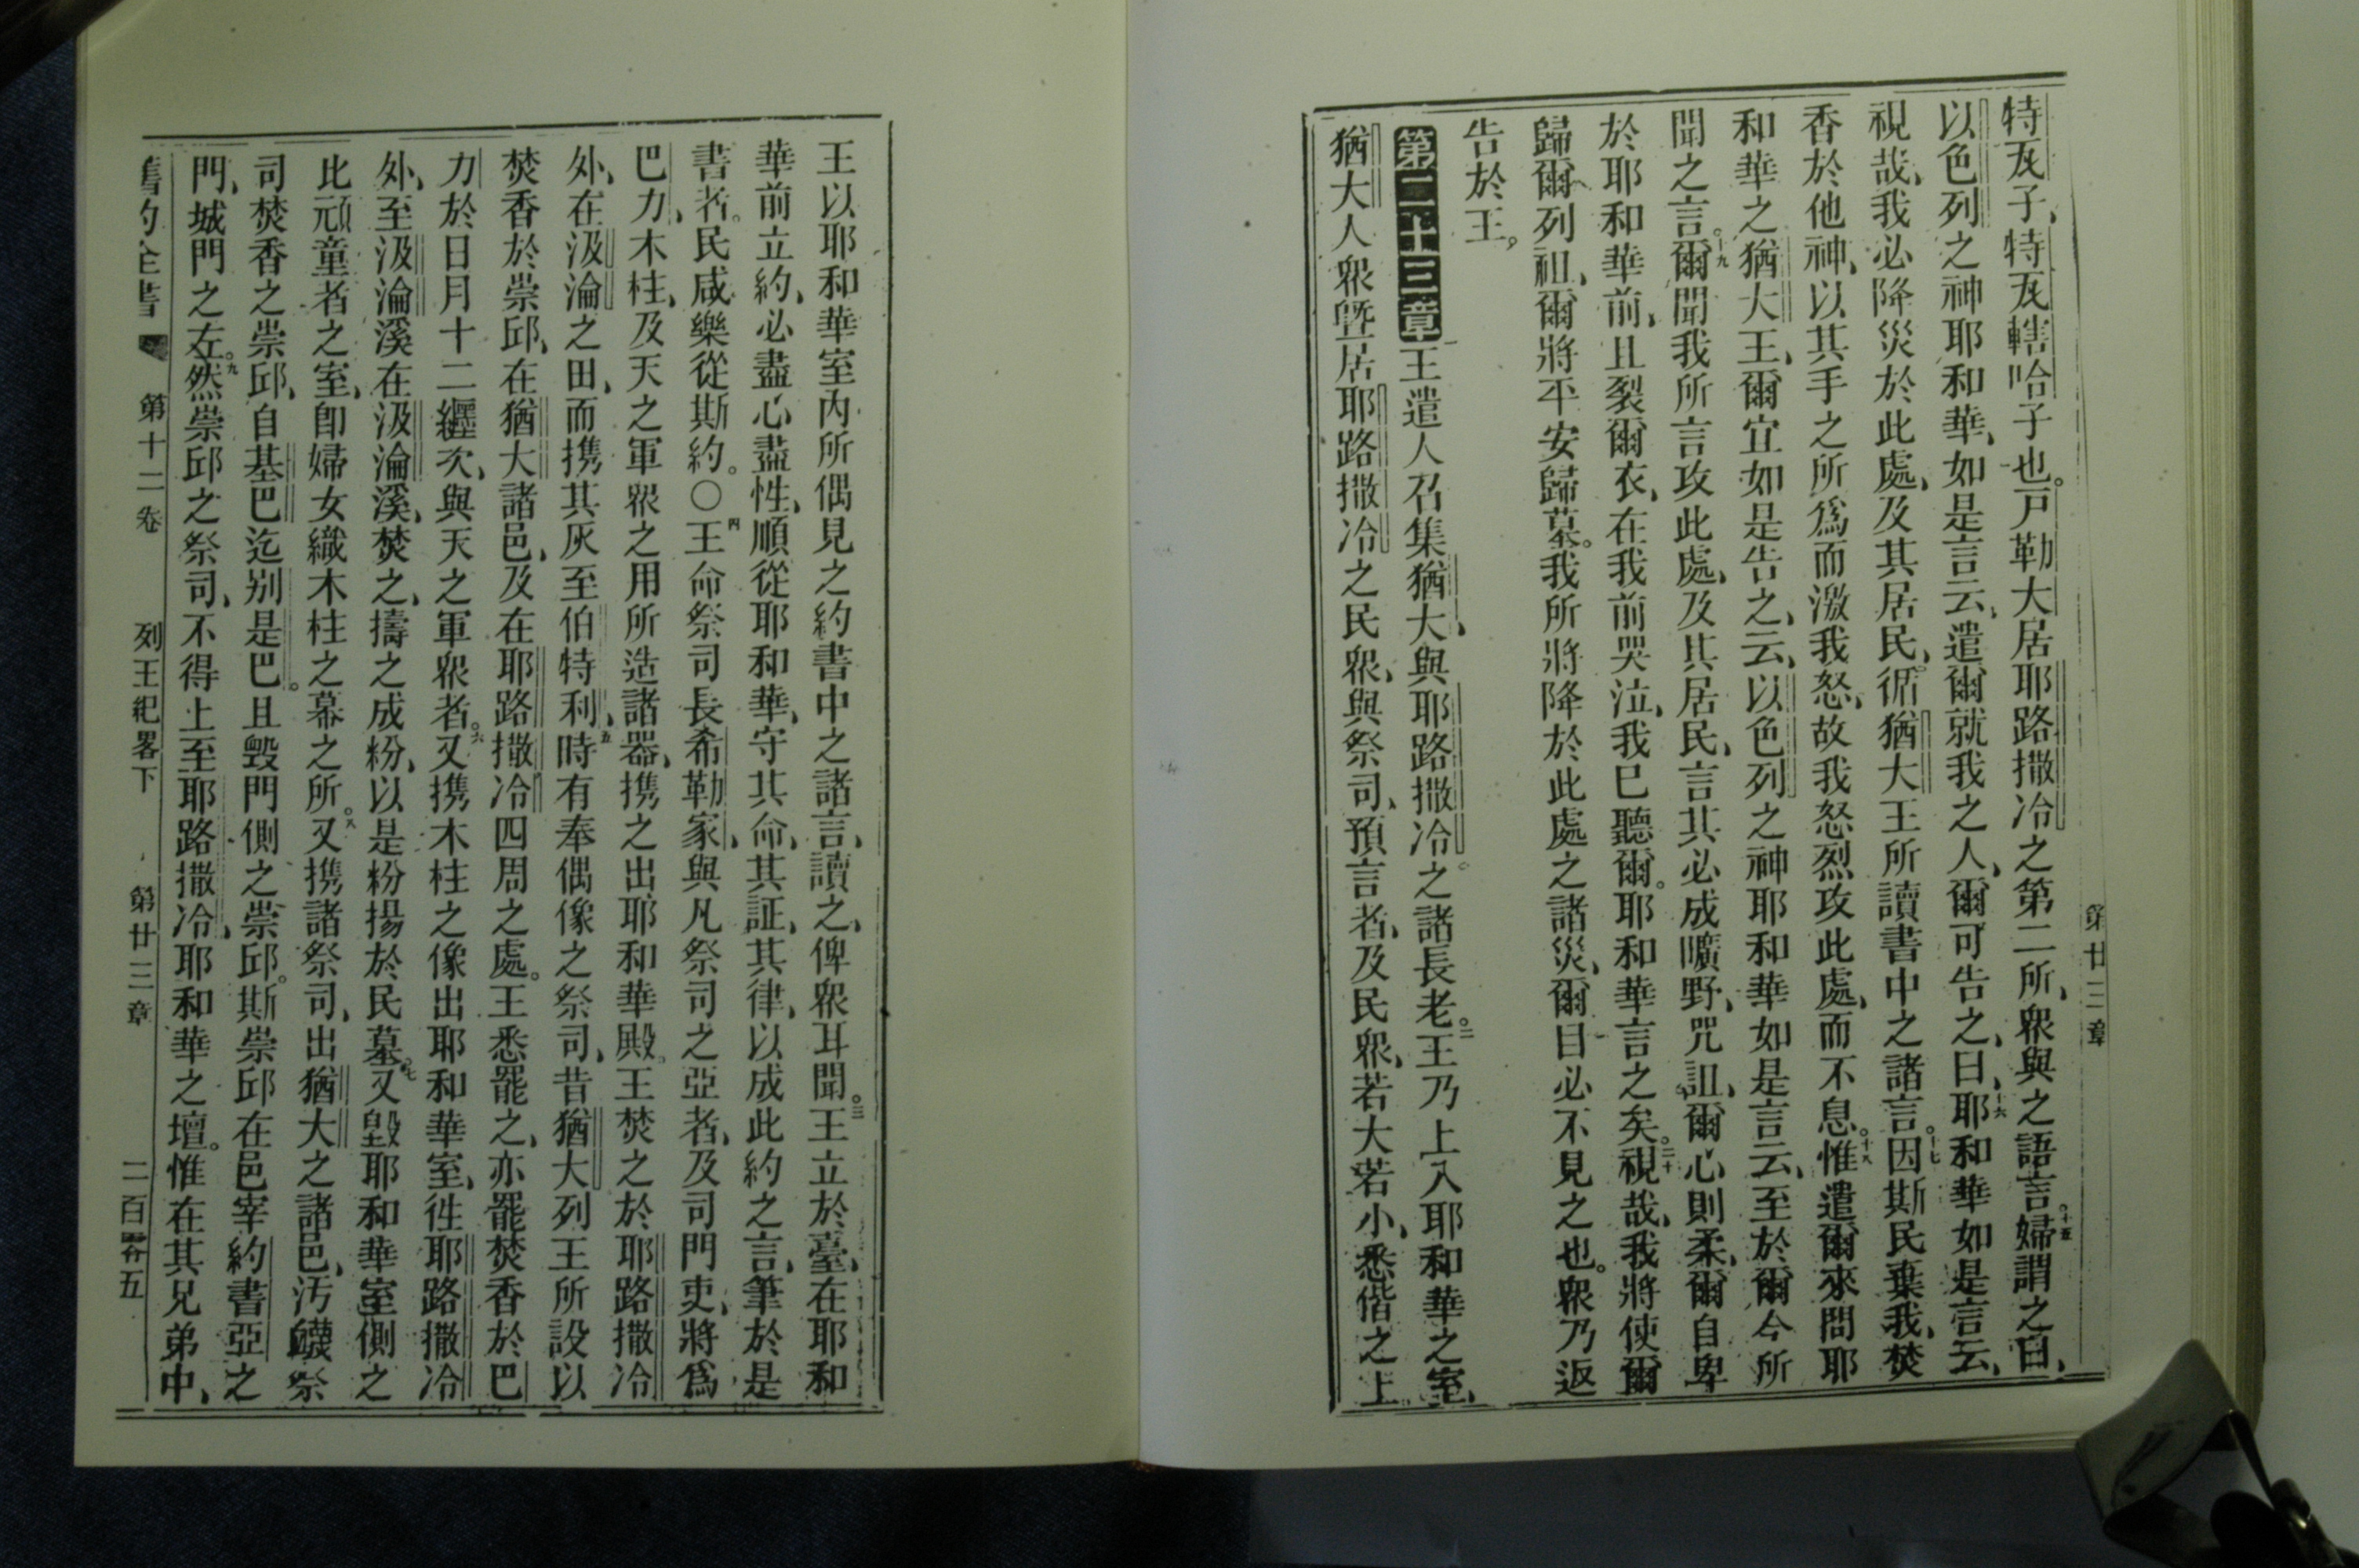 第廿三章
特瓦子、特瓦轄哈子也。戸勒大居耶路撒冷之第二所、衆與之語言。十五婦謂之曰、
以色列之神耶和華、如是言云、遣爾就我之人、爾可告之、曰、十六耶和華如是言云、
視哉、我必降災於此處、及其居民、循猶大王所讀書中之諸言。十七因斯民棄我、焚
香於他神、以其手之所爲而激我怒、故我怒烈攻此處、而不息。十八惟遣爾來問耶
和華之猶大王、爾宜如是告之、云、以色列之神耶和華如是言云、至於爾今所
聞之言。十九爾聞我所言攻此處、及其居民、言其必成曠野、咒詛、爾心則柔、爾自卑
於耶和華前、且裂爾衣、在我前哭泣、我已聽爾。耶和華言之矣。二十視哉、我將使爾
歸爾列祖、爾將平安歸墓。我所將降於此處之諸災、爾目必不見之也。衆乃返
告於王。
第二十三章王遣人召集猶大、與耶路撒冷之諸長老。二王乃上入耶和華之室、
猶大人衆曁居耶路撒冷之民衆、與祭司、預言者、及民衆、若大若小、悉偕之上
王以耶和華室內所偶見之約書中之諸言、讀之、俾衆耳聞。三王立於臺、在耶和
華前立約、必盡心盡性、順從耶和華、守其命、其証、其律、以成此約之言、筆於是
書者。民咸樂從斯約。〇四王命祭司長希勒家、與凡祭司之亞者、及司門吏、將爲
巴力、木柱、及天之軍衆之用所造諸器、携之出耶和華殿。王焚之於耶路撒冷
外、在汲淪之田、而携其灰至伯特利、五時有奉偶像之祭司、昔猶大列王所設以
焚香於崇邱、在猶大諸邑、及在耶路撒冷四周之處。王悉罷之、亦罷焚香於巴
力於日月十二纒次、與天之軍衆者。六又携木柱之像出耶和華室、徃耶路撒冷
外、至汲淪溪在汲淪溪、焚之、擣之成粉、以是粉揚於民墓。七又毀耶和華室側之
比頑童者之室、卽婦女織木柱之幕之所。八又携諸祭司、出猶大之諸邑、汚衊祭
司焚香之崇邱、自基巴迄别是巴。且毀門側之崇邱。斯崇邱在邑宰約書亞之
門、城門之左。九然崇邱之祭司、不得上至耶路撒冷、耶和華之壇。惟在其兄弟中、
舊約全書 第十二卷 列王紀畧下 第廿三章 二百零五